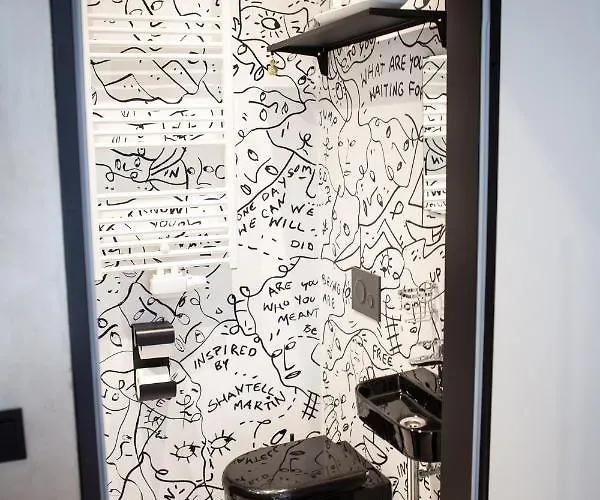 WHAT ARE YOU
WAITING FO
SOM
ONE DAY
WE CAN WE
WE WILL
DID
KNOW
YOU
ARE YOU
WHO YOU
MEANT
BE
BEING
ARE
UP
FREE
INSPIRED
BY
SHANTELL
MARTIN
IN